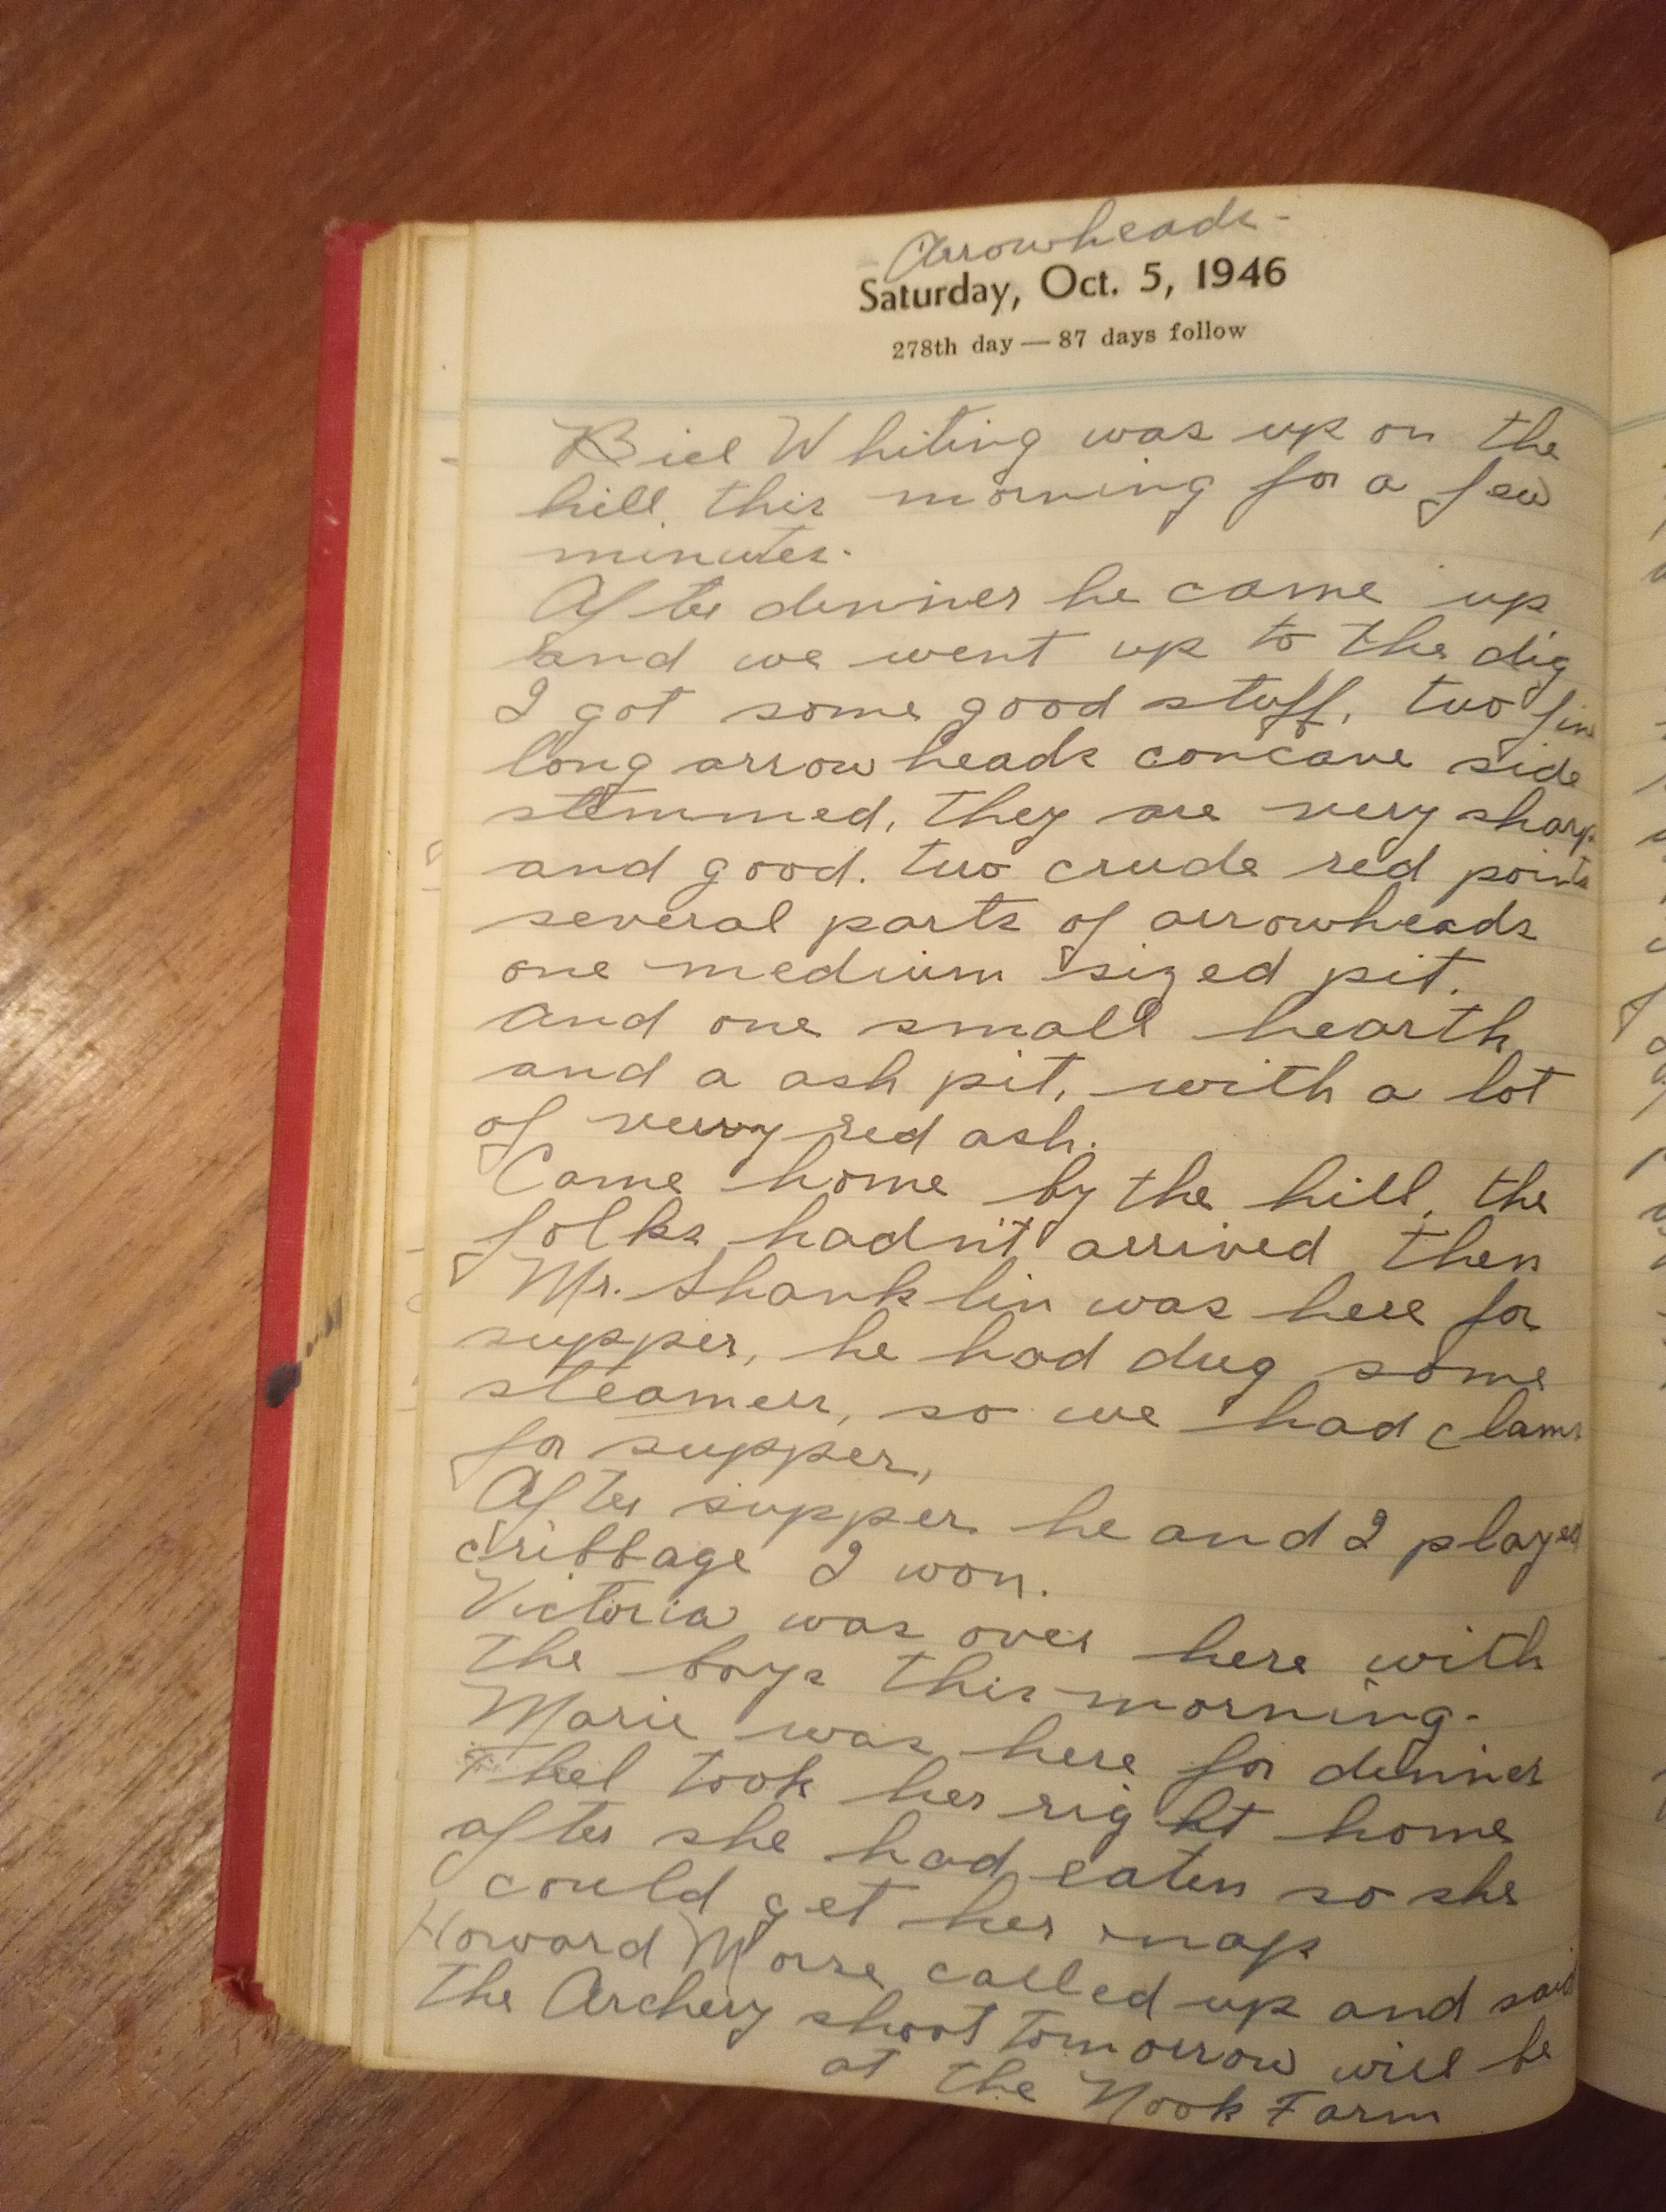 Arrowheads -
Saturday, Oct. 5, 1946
278th day — 87 days follow
Bill Whiting was up on the
hill, this morning for a few
minutes.
After dinner he came up
and we went up to the dig
I got some good stuff, two fine
long arrowheads concave side
stemmed, they are very sharp
and good. two crude red points
several parts of arrowheads
one medium sized pit.
and one small hearth
and a ash pit, with a lot
of very red ash.
Came home by the hill, the
folks hadn't arrived then
Mr. Shanklin was here for
supper, he had dug some
steamers, so we had clams
for supper,
After supper he and I played
cribbage I won.
Victoria was over here with
the boys this morning.
Marie was here for dinner
took her right home
after she had eaten so she
could get her nap
Howard Morse called up and said
the Archery shoot tomorrow will be
at the Nook Farm